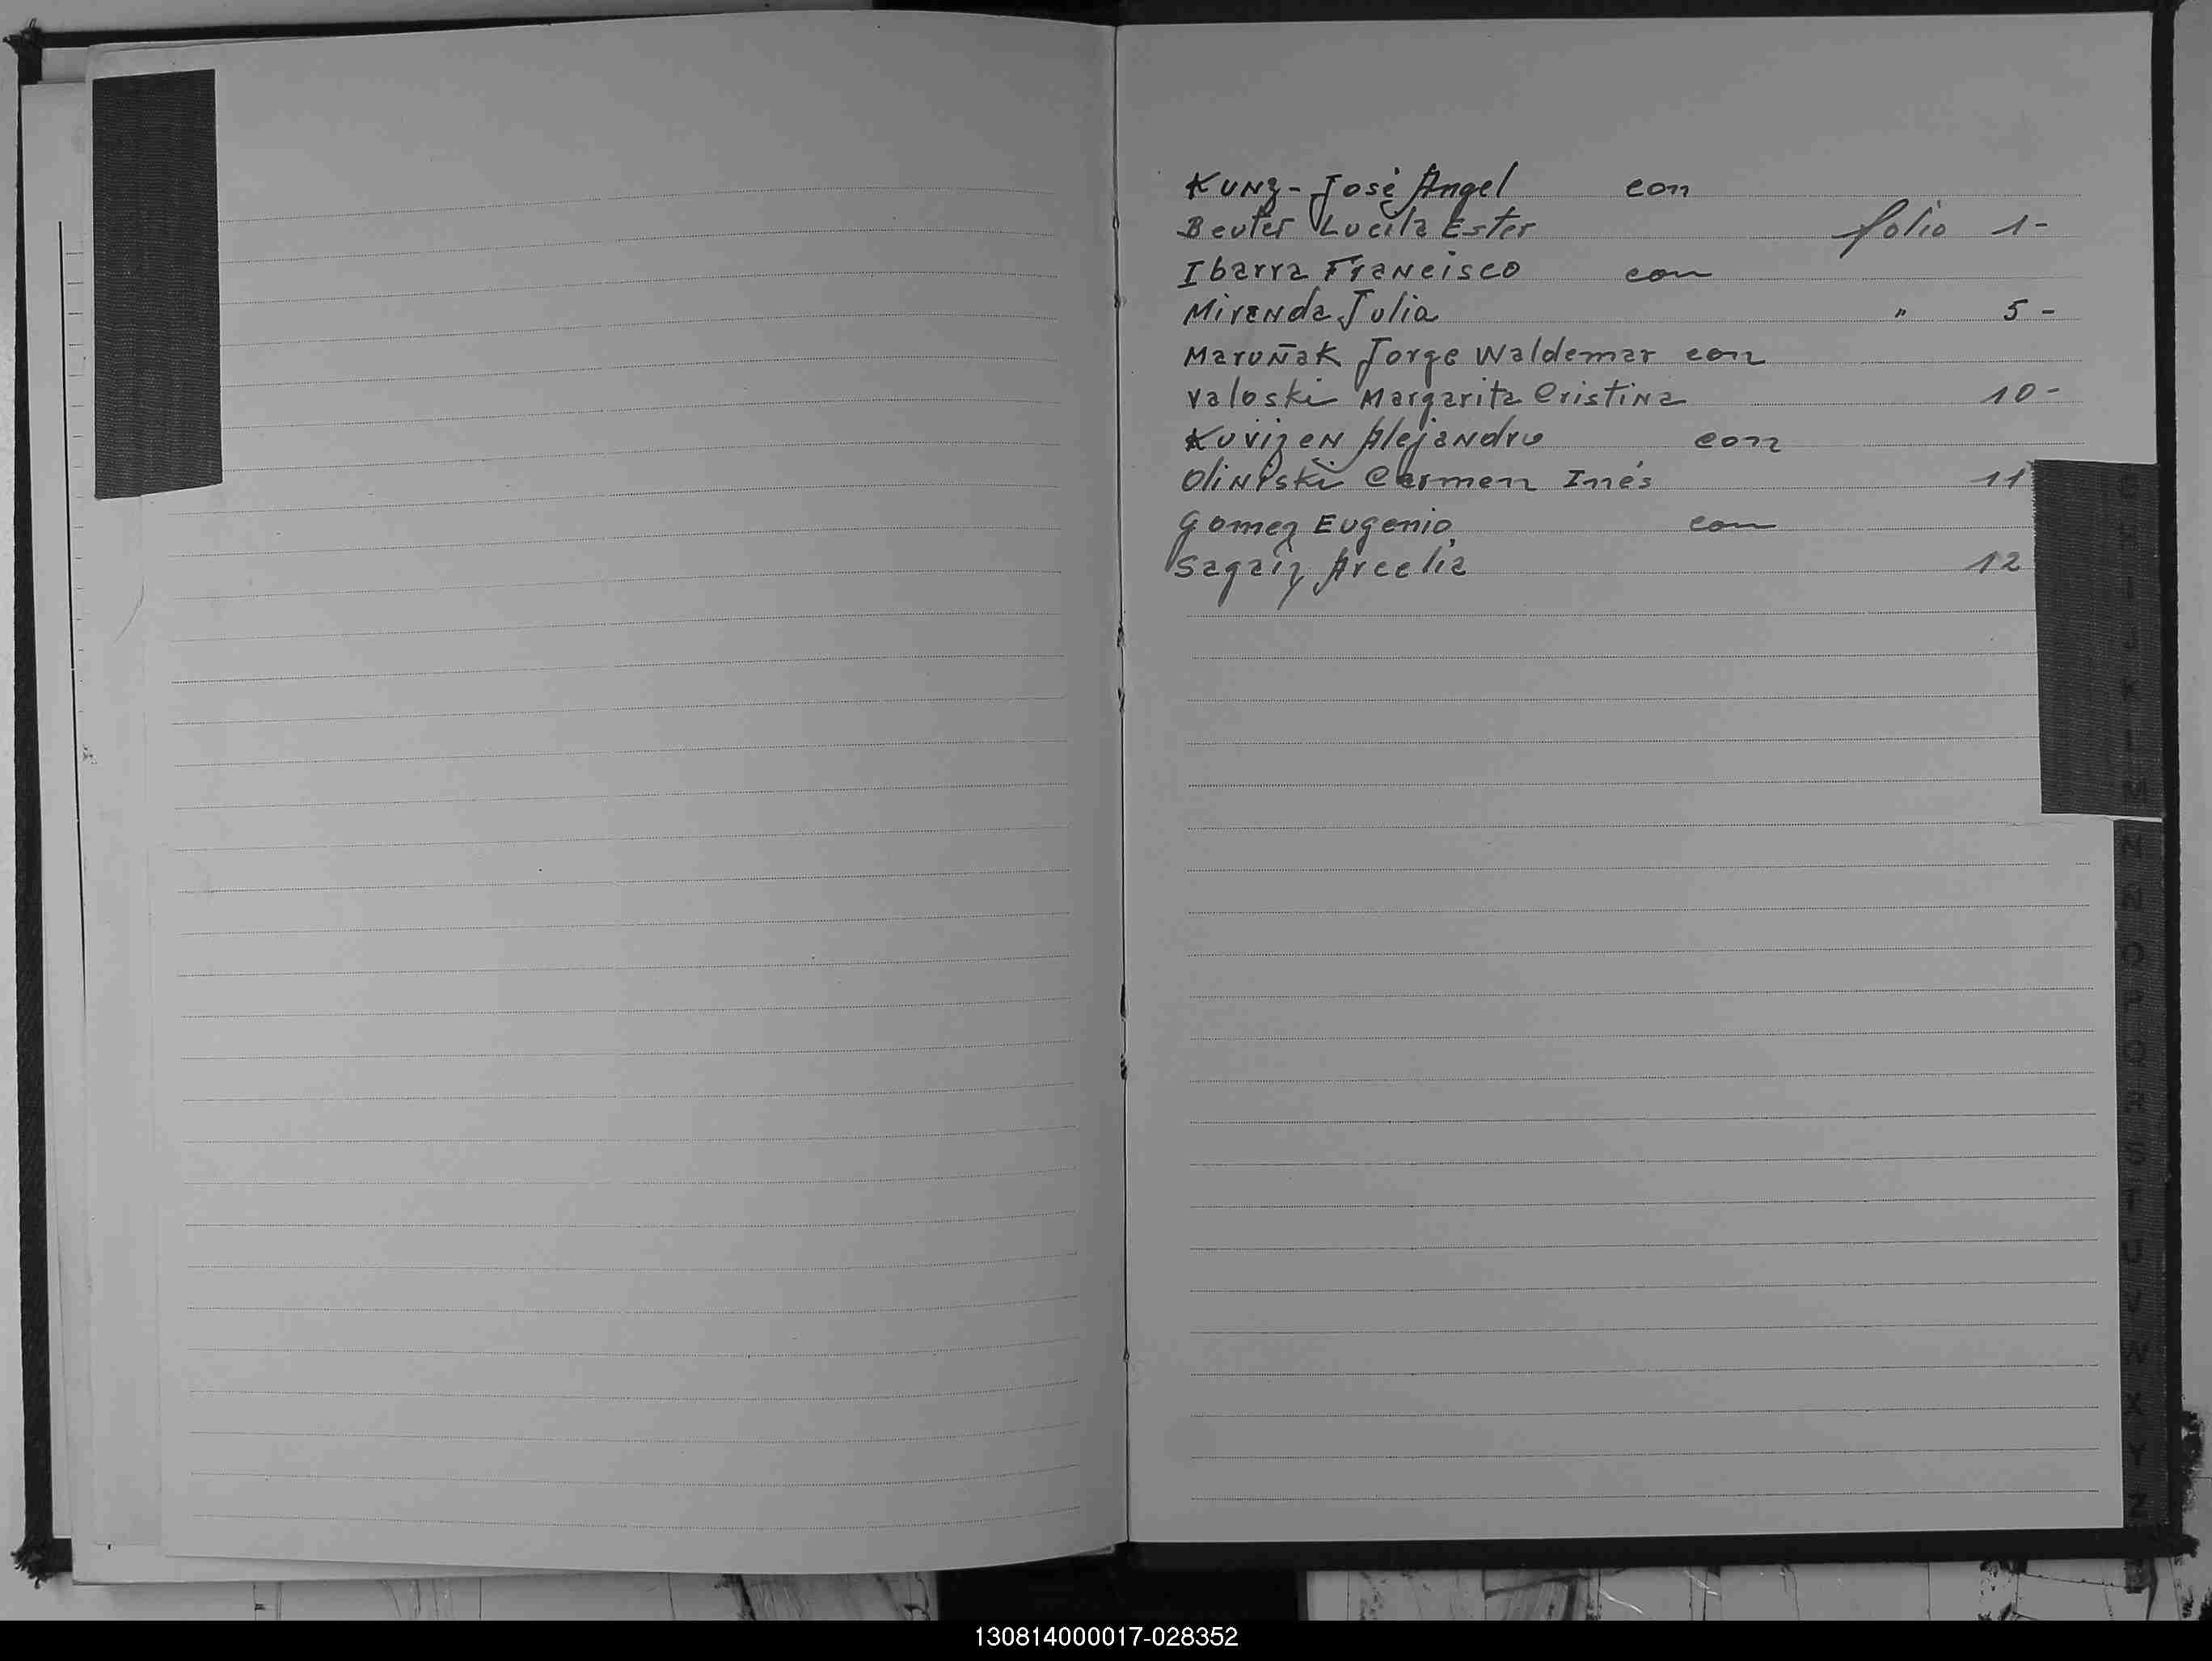 Kunz - José Angel con
Beuter Lucila Ester folio 1-
Ibarra Francisco con
Miranda Julia " 5 -
Maruñak Jorge Waldemar con
Valoski Margarita Cristina 10-
Kuvizen Alejandro con
Oliniski Carmen Inés 11
Gomez Eugenio con
Sagaiz Arcelia 12
130814000017-028352